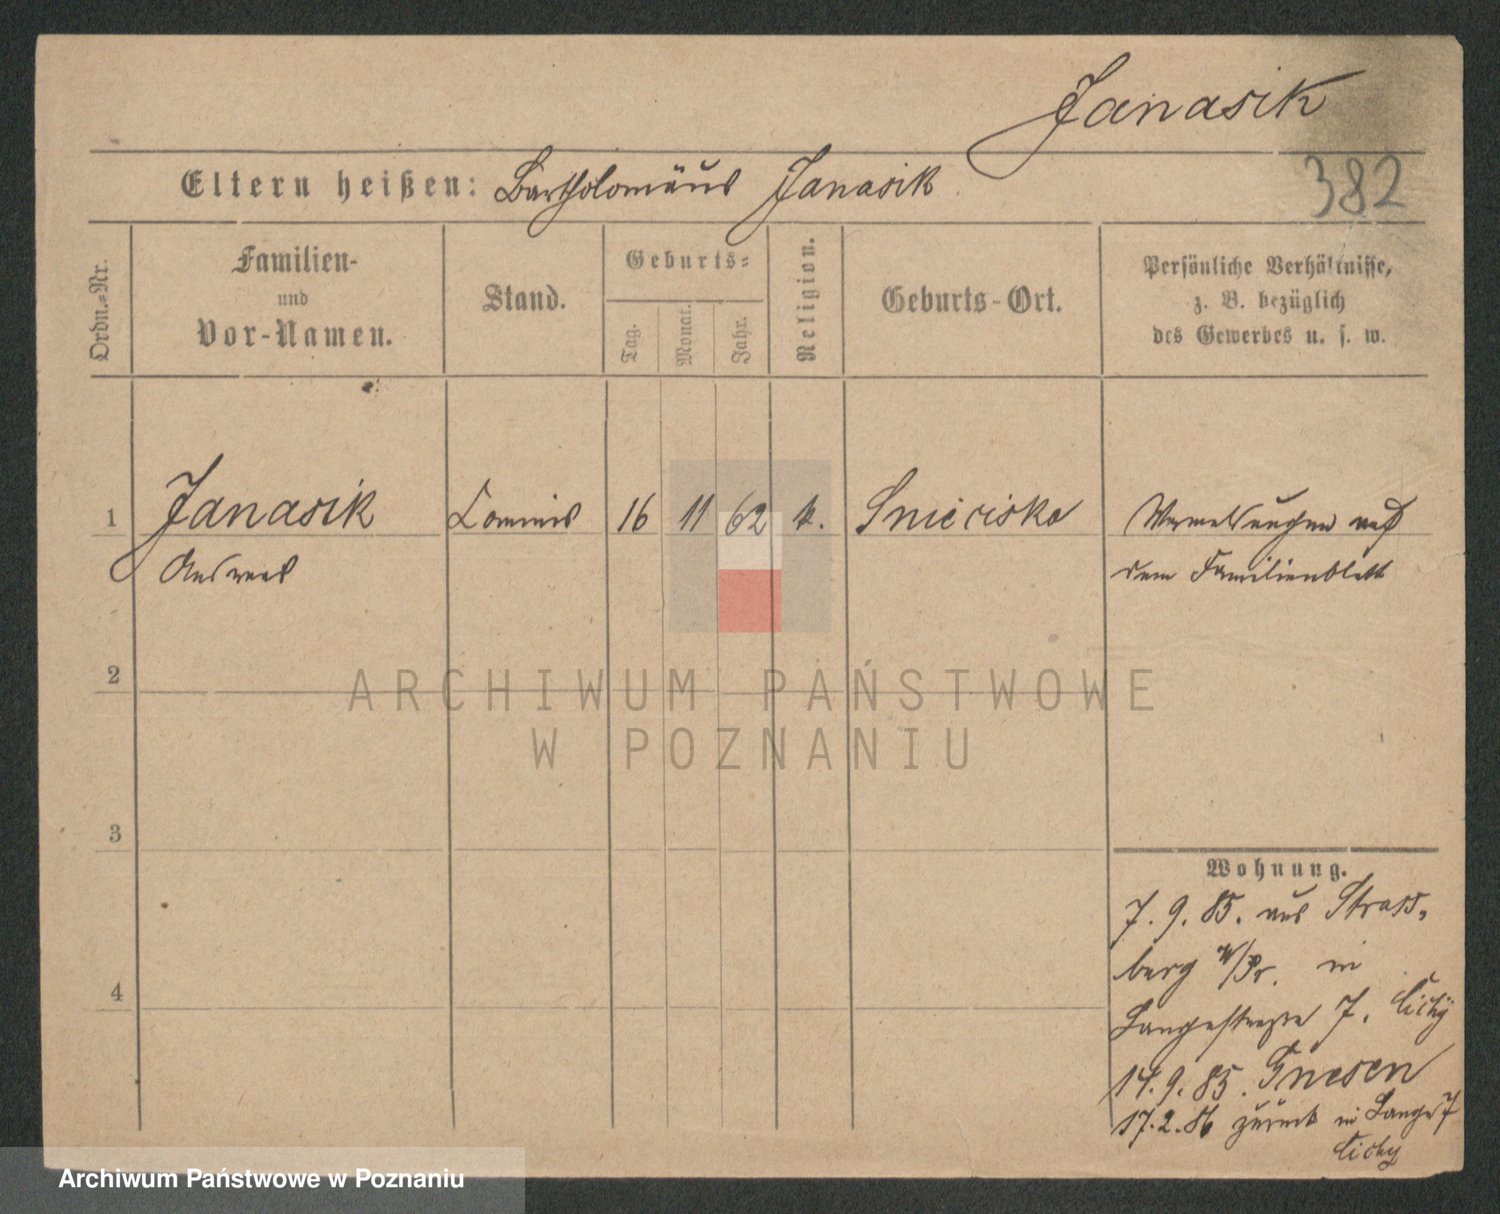 Janasik
382
Eltern heißen: Bartholomäus Janasik
Ordn.=Nr.
Familien-
und
Vor-Namen.
Stand.
Geburts=
Tag.
Monat.
Jahr.
Religion.
Geburts-Ort.
Persönliche Verhältnisse,
z. B. bezüglich
des Gewerbes u. s. w.
1 Janasik Commis 16 11 62 k. Sniecisko
Andreas
auf
dem Familienblatt
2
3
4
Wohnung.
7. 9. 85. aus Strass-
berg W/Pr. in
Langestrasse 7. Cichy
14. 9. 85. Gnesen
17. 2. 86 zurück in Lange 7
Cichy
ARCHIWUM PAŃSTWOWE
W POZNANIU
Archiwum Państwowe w Poznaniu